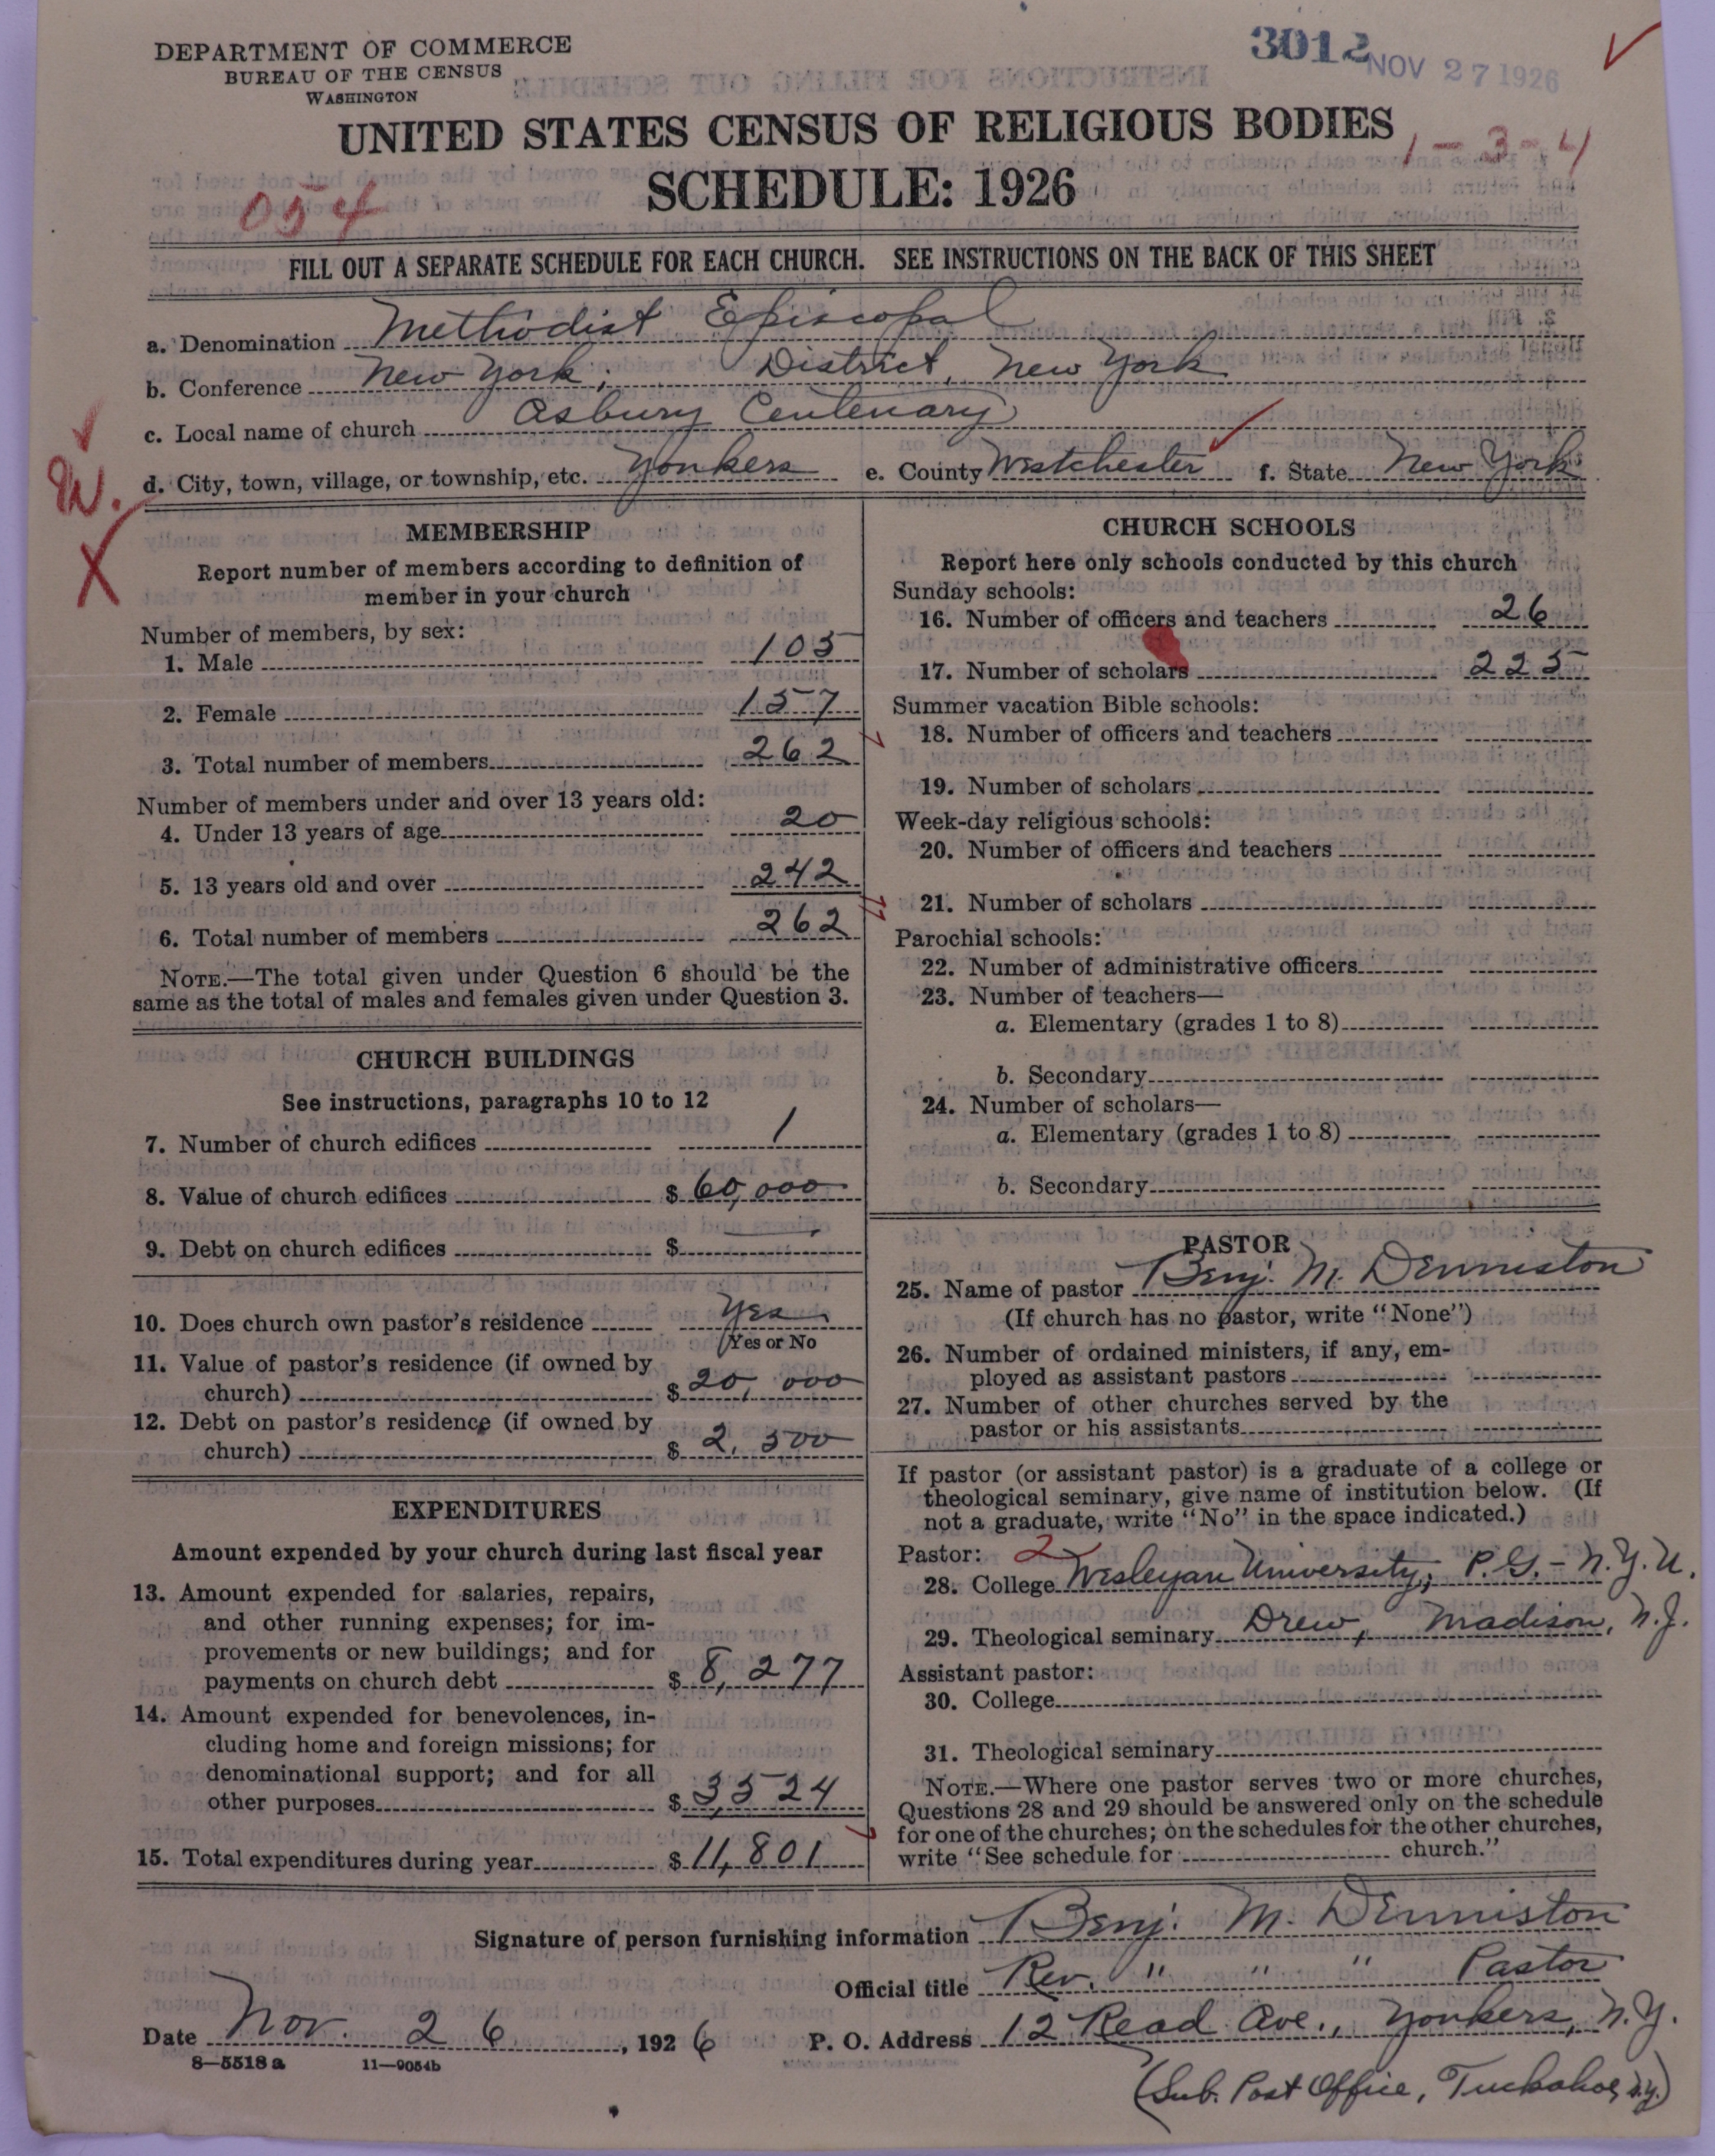 DEPARTMENT OF COMMERCE
BUREAU OF THE CENSUS
WASHINGTON
3012 NOV 27 1926
UNITED STATES CENSUS OF RELIGIOUS BODIES
1-3-4
SCHEDULE: 1926
054
FILL OUT A SEPARATE SCHEDULE FOR EACH CHURCH. SEE INSTRUCTIONS ON THE BACK OF THIS SHEET
a. Denomination Methodist Episcopal
b. Conference New York; District, New York
c. Local name of church Asbury Centenary
d. City, town, village, or township, etc. Yonkers e. County Westchester f. State New York
MEMBERSHIP
Report number of members according to definition of
member in your church
Number of members, by sex:
1. Male 105
2. Female 157
3. Total number of members 262
Number of members under and over 13 years old:
4. Under 13 years of age 20
5. 13 years old and over 242
6. Total number of members 262
NOTE.—The total given under Question 6 should be the
same as the total of males and females given under Question 3.
CHURCH BUILDINGS
See instructions, paragraphs 10 to 12
7. Number of church edifices 1
8. Value of church edifices $ 60,000
9. Debt on church edifices $ —
10. Does church own pastor's residence Yes
(Yes or No
11. Value of pastor's residence (if owned by
church) $ 20,000
12. Debt on pastor's residence (if owned by
church) $ 2,500
EXPENDITURES
Amount expended by your church during last fiscal year
13. Amount expended for salaries, repairs,
and other running expenses; for im-
provements or new buildings; and for
payments on church debt $ 8,277
14. Amount expended for benevolences, in-
cluding home and foreign missions; for
denominational support; and for all
other purposes $ 3,524
15. Total expenditures during year $ 11,801
CHURCH SCHOOLS
Report here only schools conducted by this church
Sunday schools:
16. Number of officers and teachers 26
17. Number of scholars 225
Summer vacation Bible schools:
18. Number of officers and teachers
19. Number of scholars
Week-day religious schools:
20. Number of officers and teachers
21. Number of scholars
Parochial schools:
22. Number of administrative officers
23. Number of teachers—
a. Elementary (grades 1 to 8)
b. Secondary
24. Number of scholars—
a. Elementary (grades 1 to 8)
b. Secondary
PASTOR
25. Name of pastor Benj. M. Denniston
(If church has no pastor, write "None")
26. Number of ordained ministers, if any, em-
ployed as assistant pastors
27. Number of other churches served by the
pastor or his assistants
If pastor (or assistant pastor) is a graduate of a college or
theological seminary, give name of institution below. (If
not a graduate, write "No" in the space indicated.)
Pastor: 2
28. College Wesleyan University; P.G.- N.Y.U.
29. Theological seminary Drew, Madison, N.J.
Assistant pastor:
30. College
31. Theological seminary
NOTE.—Where one pastor serves two or more churches,
Questions 28 and 29 should be answered only on the schedule
for one of the churches; on the schedules for the other churches,
write "See schedule for church."
Signature of person furnishing information Benj. M. Denniston
Official title Rev. " " " Pastor
Date Nov. 26, 1926 P. O. Address 12 Read Ave., Yonkers, N.Y.
8—5518a 11—9054b
(Sub. Post Office, Tuckahoe, N.Y.)